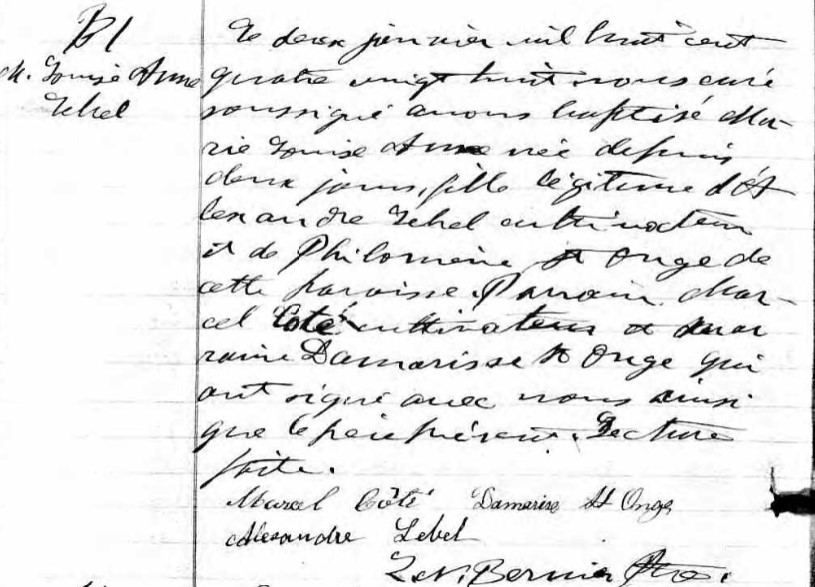 B1
M. Louise Anne
Lebel
Le deux janvier mil huit cent
quatre vingt huit nous curé
soussigné avons baptisé Ma-
rie Louise Anne née depuis
deux jours, fille légitime d'A
lexandre Lebel cultivateur
et de Philomène St Onge de
cette paroisse. Parrain Mar-
cel Coté cultivateur et mar
raine Damarisse St Onge qui
ont signé avec nous ainsi
que le père présent. Lecture
faite.
Marcel Côté Damarise St Onge
Alexandre Lebel
Bernier Ptre